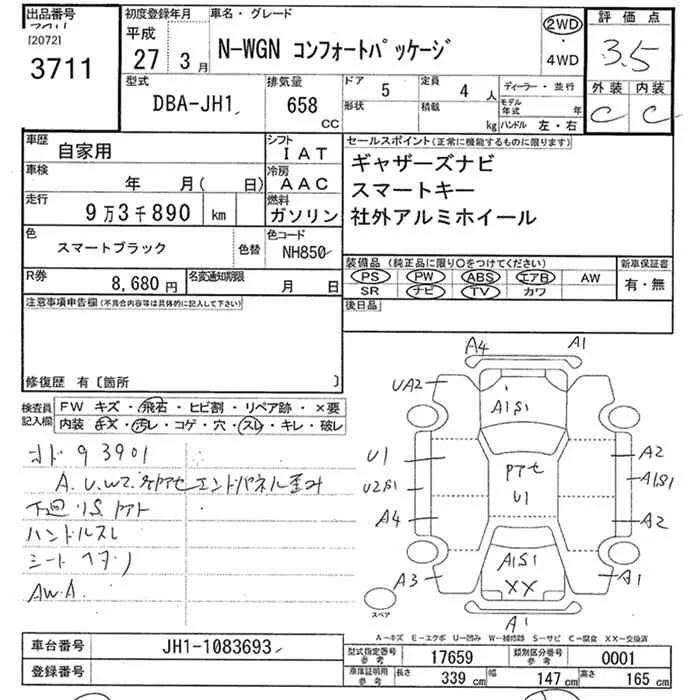 出品番号
[2072]
3711
初度登録年月
平成
27年 3月
車名・グレード
N-WGN コンフォートパッケージ
2WD
・
4WD
評価点
3.5
外装 内装
C C
型式
DBA-JH1
排気量
658
CC
ドア 5
形状
定員 4 人
積載 kg
ディーラー・並行
モデル年式 年
ハンドル 左・右
車歴
自家用
シフト
IAT
車検
年 月( 日)
冷房
AAC
走行
9万3千890 km
燃料
ガソリン
色
スマートブラック
色替
色コード
NH850
R券
8,680円
名変通知期限
月 日
セールスポイント(正常に機能するものに限ります)
ギャザーズナビ
スマートキー
社外アルミホイール
装備品(純正品に限り○をつけてください)
PS PW ABS エアB AW
SR ナビ TV カワ
新車保証書
有・無
後日品
注意事項申告欄(不具合内容等は具体的に記入して下さい)
修復歴 有〔箇所 〕
検査員記入欄
FW キズ・飛石・ヒビ割・リペア跡・×要
内装・キズ・汚レ・コゲ・穴・スレ・キレ・破レ
93901
A.U.W2. エンドパネル歪み
下回りS.
ハンドルスレ
シート
AW.A
A4 A1
UA2
A1S1
U1
U2S1
A4
A3
U1
A2
A1S1
A2
A1
A1S1
XX
A1
スペア
A-キズ E-エクボ U-凹み W-補修跡 S-サビ C-腐食 XX-交換済
車台番号
JH1-1083693
登録番号
型式指定番号 参考 17659
類別区分番号 参考 0001
車庫証明用 参考 長さ 339 cm 幅 147 cm 高さ 165 cm